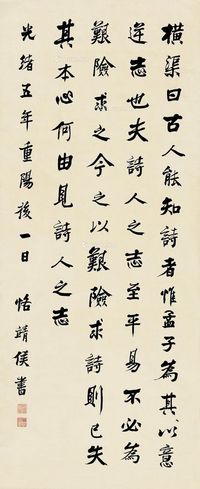 橫渠曰古人能知詩者惟孟子為其以意
逆志也夫詩人之志至平易不必為
艱險求之今之以艱險求詩則已失
其本心何由見詩人之志
光緒五年重陽後一日 恬靖侯書